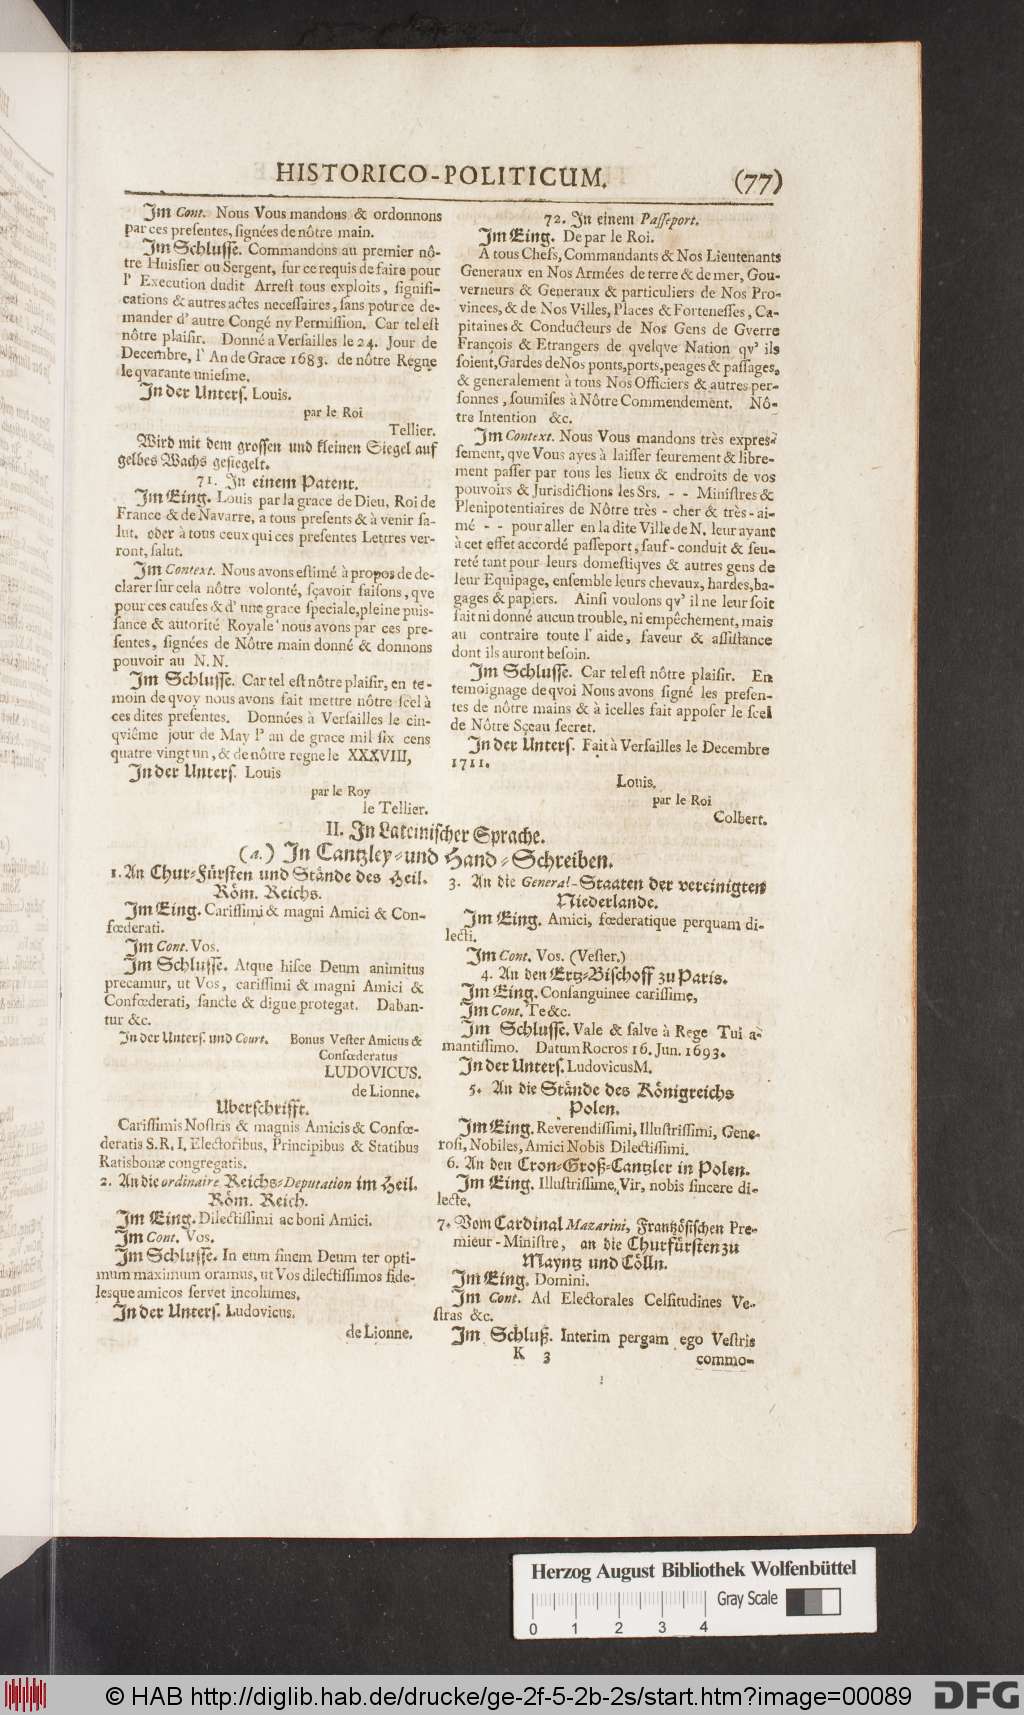 HISTORICO-POLITICUM. (77)
Im Cont. Nous Vous mandons & ordonnons
par ces presentes, signées de nôtre main.
Im Schlusse. Commandons au premier nô-
tre Huissier ou Sergent, sur ce requis de faire pour
l' Execution dudit Arrest tous exploits, signifi-
cations & autres actes necessaires, sans pour ce de-
mander d' autre Congé ny Permission. Car tel est
nôtre plaisir. Donné a Versailles le 24. Jour de
Decembre, l' An de Grace 1683. de nôtre Regne
le qvarante uniesme.
In der Unters. Louis.
par le Roi
Tellier.
Wird mit dem grossen und kleinen Siegel auf
gelbes Wachs gesiegelt.
71. In einem Patent.
Im Eing. Louis par la grace de Dieu, Roi de
France & de Navarre, a tous presents & à venir sa-
lut. oder à tous ceux qui ces presentes Lettres ver-
ront, salut.
Im Context. Nous avons estimé à propos de de-
clarer sur cela nôtre volonté, sçavoir faisons, qve
pour ces causes & d' une grace speciale, pleine puis-
sance & autorité Royale nous avons par ces pre-
sentes, signées de Nôtre main donné & donnons
pouvoir au N. N.
Im Schlusse. Car tel est nôtre plaisir, en te-
moin de qvoy nous avons fait mettre nôtre scel à
ces dites presentes. Données à Versailles le cin-
qviême jour de May l' an de grace mil six cens
quatre vingt un, & de nôtre regne le XXXVIII,
In der Unters. Louis
par le Roy
le Tellier.
72. In einem Passeport.
Im Eing. De par le Roi.
A tous Chefs, Commandants & Nos Lieutenants
Generaux en Nos Armées de terre & de mer, Gou-
verneurs & Generaux & particuliers de Nos Pro-
vinces, & de Nos Villes, Places & Fortenesses, Ca-
pitaines & Conducteurs de Nos Gens de Gverre
François & Etrangers de qvelqve Nation qv' ils
soient, Gardes de Nos ponts, ports, peages & passages,
& generalement à tous Nos Officiers & autres per-
sonnes, soumises à Nôtre Commendement. Nô-
tre Intention &c.
Im Context. Nous Vous mandons très expres-
sement, qve Vous ayes à laisser seurement & libre-
ment passer par tous les lieux & endroits de vos
pouvoirs & Jurisdictions les Srs. - - Ministres &
Plenipotentiaires de Nôtre très - cher & très - ai-
mé - - pour aller en la dite Ville de N. leur ayant
à cet effet accordé passeport, sauf - conduit & seu-
reté tant pour leurs domestiqves & autres gens de
leur Equipage, ensemble leurs chevaux, hardes, ba-
gages & papiers. Ainsi voulons qv' il ne leur soit
fait ni donné aucun trouble, ni empêchement, mais
au contraire toute l' aide, faveur & assistance
dont ils auront besoin.
Im Schlusse. Car tel est nôtre plaisir. En
temoignage de qvoi Nous avons signé les presen-
tes de nôtre mains & à icelles fait apposer le scel
de Nôtre Sçeau secret.
In der Unters. Fait à Versailles le Decembre
1711.
Louis.
par le Roi
Colbert.
II. In Lateinischer Sprache.
(a.) In Cantzley-und Hand-Schreiben.
1. An Chur-Fürsten und Stände des Heil.
Röm. Reichs.
Im Eing. Carissimi & magni Amici & Con-
fœderati.
Im Cont. Vos.
Im Schlusse. Atque hisce Deum animitus
precamur, ut Vos, carissimi & magni Amici &
Confœderati, sancte & digne protegat. Daban-
tur &c.
In der Unters. und Court. Bonus Vester Amicus &
Confœderatus
LUDOVICUS.
de Lionne.
Uberschrifft.
Carissimis Nostris & magnis Amicis & Confœ-
deratis S. R. I. Electoribus, Principibus & Statibus
Ratisbonæ congregatis.
2. An die ordinaire Reichs-Deputation im Heil.
Röm. Reich.
Im Eing. Dilectissimi ac boni Amici.
Im Cont. Vos.
Im Schlusse. In eum finem Deum ter opti-
mum maximum oramus, ut Vos dilectissimos fide-
lesque amicos servet incolumes.
In der Unters. Ludovicus.
de Lionne.
3. An die General-Staaten der vereinigten
Niederlande.
Im Eing. Amici, fœderatique perquam di-
lecti.
Im Cont. Vos. (Vester.)
4. An den Ertz-Bischoff zu Paris.
Im Eing. Consanguinee carissime,
Im Cont. Te &c.
Im Schlusse. Vale & salve à Rege Tui a-
mantissimo. Datum Rocros 16. Jun. 1693.
In der Unters. Ludovicus M.
5. An die Stände des Königreichs
Polen.
Im Eing. Reverendissimi, Illustrissimi, Gene-
rosi, Nobiles, Amici Nobis Dilectissimi.
6. An den Cron-Groß-Cantzler in Polen.
Im Eing. Illustrissime, Vir, nobis sincere di-
lecte.
7. Vom Cardinal Mazarini, Frantzösischen Pre-
mieur - Ministre, an die Churfürsten zu
Mayntz und Cölln.
Im Eing. Domini.
Im Cont. Ad Electorales Celsitudines Ve-
stras &c.
Im Schluß. Interim pergam ego Vestris
K 3 commo-
Herzog August Bibliothek Wolfenbüttel
Gray Scale
0 1 2 3 4
© HAB http://diglib.hab.de/drucke/ge-2f-5-2b-2s/start.htm?image=00089
DFG